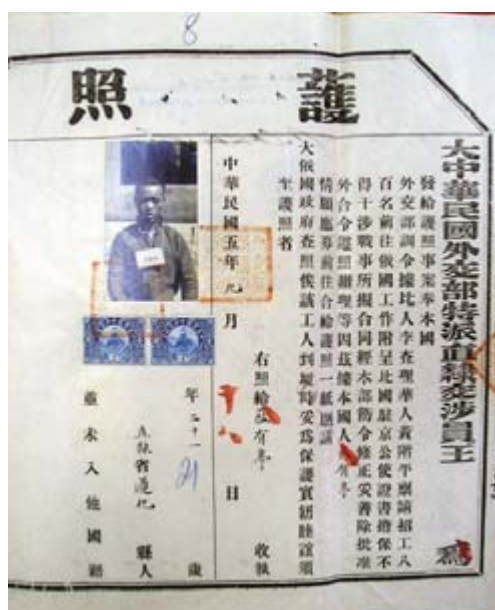 8
護照
大中華民國外交部特派直隸交涉員王為
發給護照事案奉本國
外交部訓令據比人李查理華人黃階平稟請招工八
百名前往俄國工作附呈比國駐京公使證書擔保不
得干涉戰事所擬合同經本部飭令修正妥善除批准
外合令遵照辦理等因茲據本國人
情願應募前往合給護照一紙
大俄國政府查照俟該工人到境時妥為保護實紉睦誼須
至護照者
右照給 收執
中華民國五年九月十八日
年二十一歲
21
直隸省遵化縣人
並未入他國籍